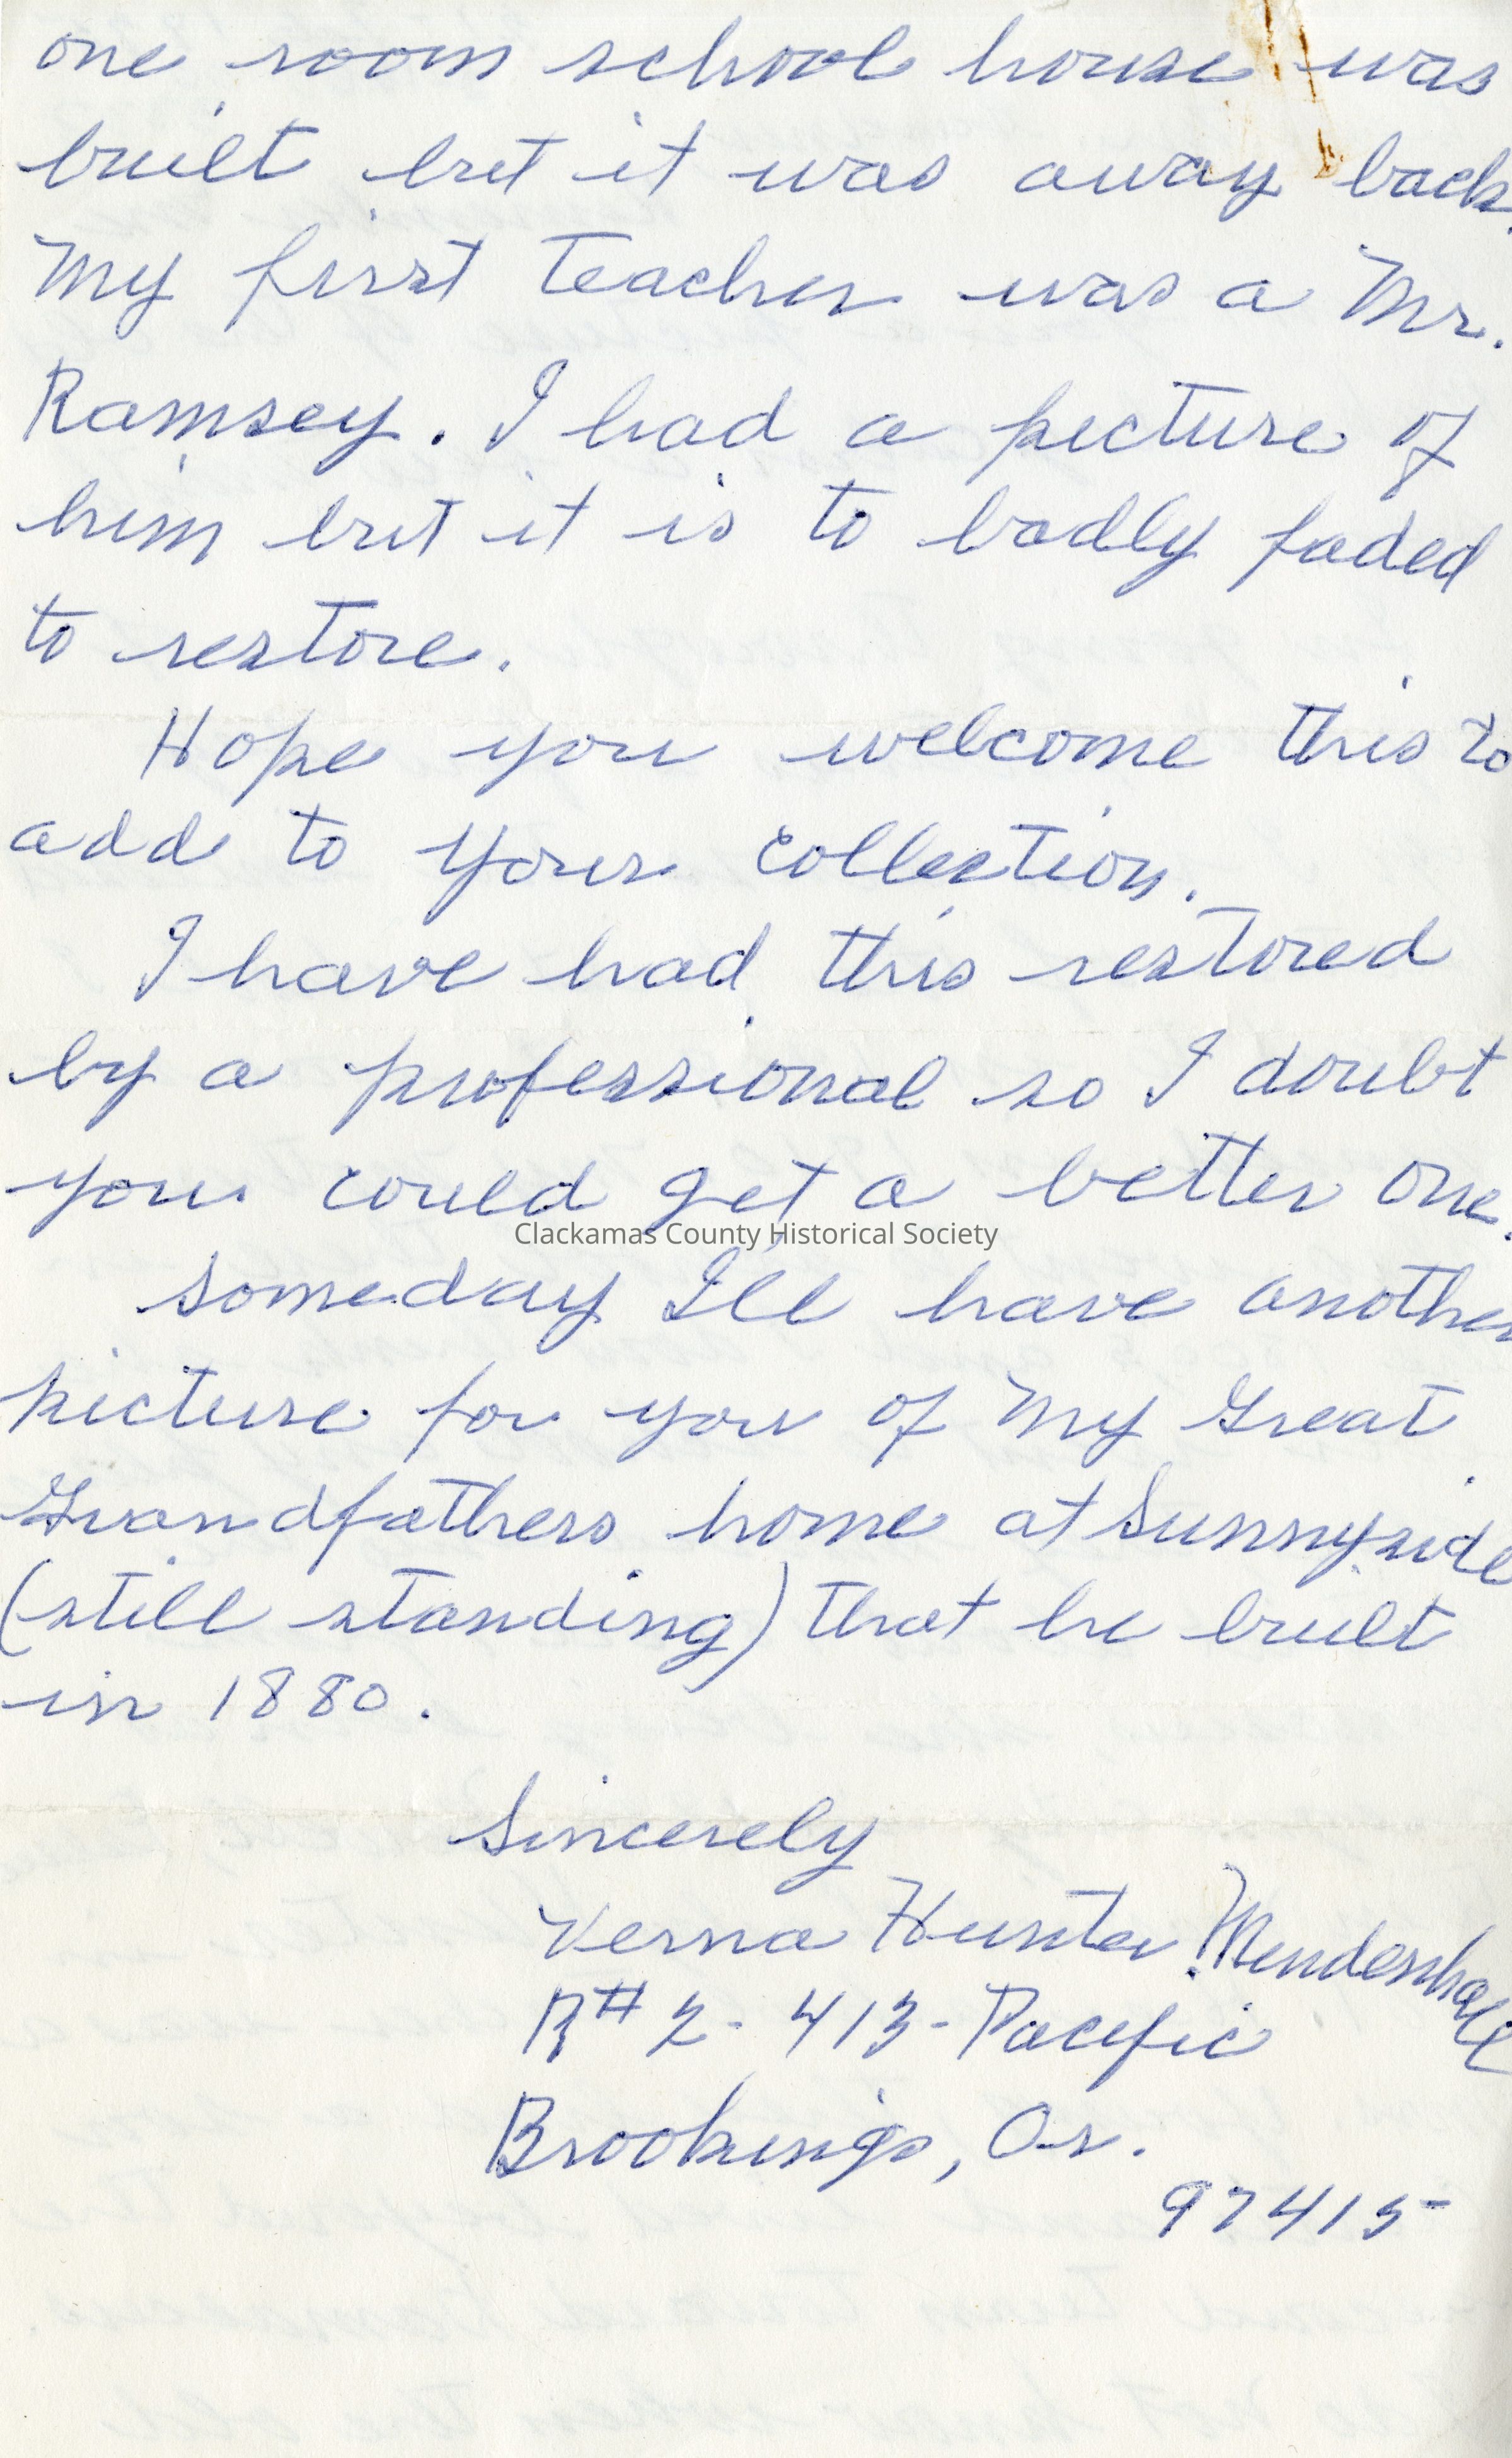 one room school house was
built but it was away back.
My first teacher was a Mr.
Ramsey. I had a picture of
him but it is to badly faded
to restore.
Hope you welcome this to
add to your collection.
I have had this restored
by a professional so I doubt
you could get a better one.
Clackamas County Historical Society
someday I'll have another
picture for you of my Great
Grandfathers home at Sunnyside
(still standing) that he built
in 1880.
Sincerely
Verna Hunter Mendenhall
R# 2 - 413 - Pacific
Brookings, Or.
97415